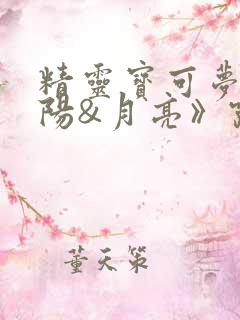 精靈寶可夢
陽&月亮》
董天策